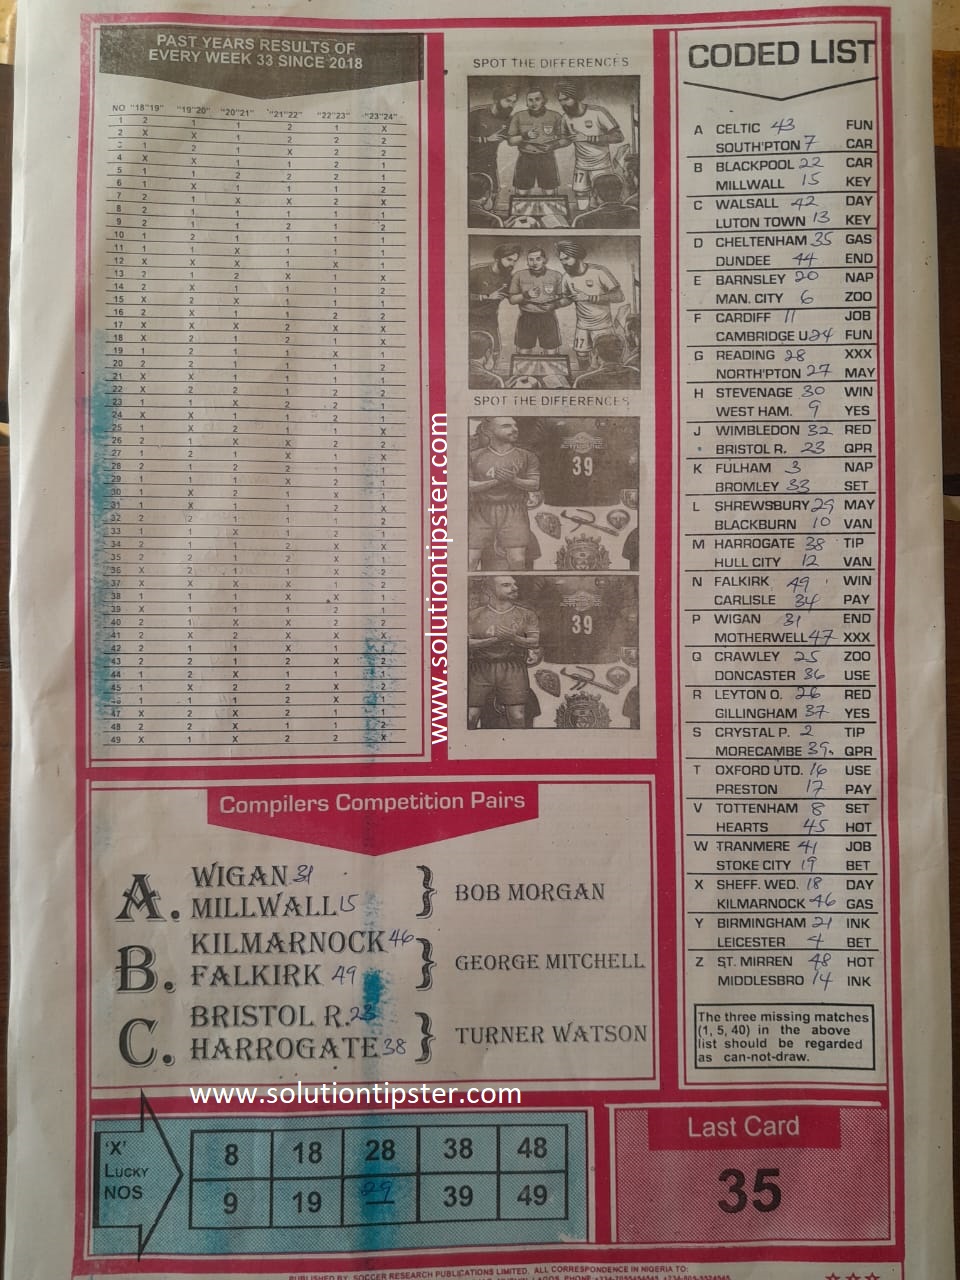 PAST YEARS RESULTS OF
EVERY WEEK 33 SINCE 2018
NO "18"19" "19"20" "20"21" "21"22" "22"23" "23"24"
1 2 1 1 2 1 X
2 X X 1 2 2 2
3 1 2 1 X 2 2
4 X X 1 1 2 1
5 1 1 2 2 2 1
6 1 X 1 1 1 2
7 2 1 X X 2 X
8 2 1 1 1 1 1
9 2 1 1 2 1 2
10 1 2 1 1 1 1
11 1 1 X 1 1 1
12 X X X 1 X 1
13 2 1 2 X 1 1
14 2 X 1 1 1 2
15 X 2 X 1 1 1
16 2 X 1 1 1 1
17 X X X 2 X X
18 X 2 1 2 X X
19 1 2 1 1 X 1
20 2 2 1 1 1 2
21 X X 1 1 1 1
22 X 2 2 1 1 2
23 1 1 X 2 2 1
24 X X 1 1 2 1
25 1 X 2 1 1 1
26 2 1 X X 2 2
27 1 2 1 X 1 X
28 2 1 2 2 1 1
29 1 1 1 X 2 1
30 1 X 2 1 X 1
31 1 X 1 1 2 X
32 2 2 1 1 1 2
33 1 1 X 1 2 1
34 2 1 1 2 X X
35 2 2 1 2 X 1
36 X 2 1 1 X 2
37 X X X X 1 2
38 1 1 1 X X 1
39 X 1 1 1 2 1
40 2 1 X X 2 2
41 2 X 2 X X X
42 2 1 1 2 X 1
43 2 2 1 2 X 2
44 1 2 X 1 1 1
45 1 X 2 2 X X
46 1 1 1 2 X 1
47 X 2 X 2 1 1
48 2 2 X 1 1 2
49 X 1 X 2 2 X
www.solutiontipster.com
SPOT THE DIFFERENCES
17
17
SPOT THE DIFFERENCES
39
39
CODED LIST
A CELTIC 43 FUN
SOUTH'PTON 7 CAR
B BLACKPOOL 22 CAR
MILLWALL 15 KEY
C WALSALL 42 DAY
LUTON TOWN 13 KEY
D CHELTENHAM 35 GAS
DUNDEE 44 END
E BARNSLEY 20 NAP
MAN. CITY 6 ZOO
F CARDIFF 11 JOB
CAMBRIDGE U 24 FUN
G READING 28 XXX
NORTH'PTON 27 MAY
H STEVENAGE 30 WIN
WEST HAM. 9 YES
J WIMBLEDON 32 RED
* BRISTOL R. 23 QPR
K FULHAM 3 NAP
BROMLEY 33 SET
L SHREWSBURY 29 MAY
BLACKBURN 10 VAN
M HARROGATE 38 TIP
HULL CITY 12 VAN
N FALKIRK 49 WIN
CARLISLE 34 PAY
P WIGAN 31 END
MOTHERWELL 47 XXX
Q CRAWLEY 25 ZOO
DONCASTER 36 USE
R LEYTON O. 26 RED
GILLINGHAM 37 YES
S CRYSTAL P. 2 TIP
MORECAMBE 39 QPR
T OXFORD UTD. 16 USE
PRESTON 17 PAY
V TOTTENHAM 8 SET
HEARTS 45 HOT
W TRANMERE 41 JOB
STOKE CITY 19 BET
X SHEFF. WED. 18 DAY
KILMARNOCK 46 GAS
Y BIRMINGHAM 21 INK
LEICESTER 4 BET
Z ST. MIRREN 48 HOT
MIDDLESBRO 14 INK
The three missing matches
(1, 5, 40) in the above
list should be regarded
as can-not-draw.
Compilers Competition Pairs
A. WIGAN 31
MILLWALL 15
} BOB MORGAN
B. KILMARNOCK 46
FALKIRK 49
} GEORGE MITCHELL
C. BRISTOL R. 23
HARROGATE 38
} TURNER WATSON
www.solutiontipster.com
'X'
LUCKY
NOS
8 18 28 38 48
9 19 29 39 49
Last Card
35
PUBLISHED BY: SOCCER RESEARCH PUBLICATIONS LIMITED. ALL CORRESPONDENCE IN NIGERIA TO: